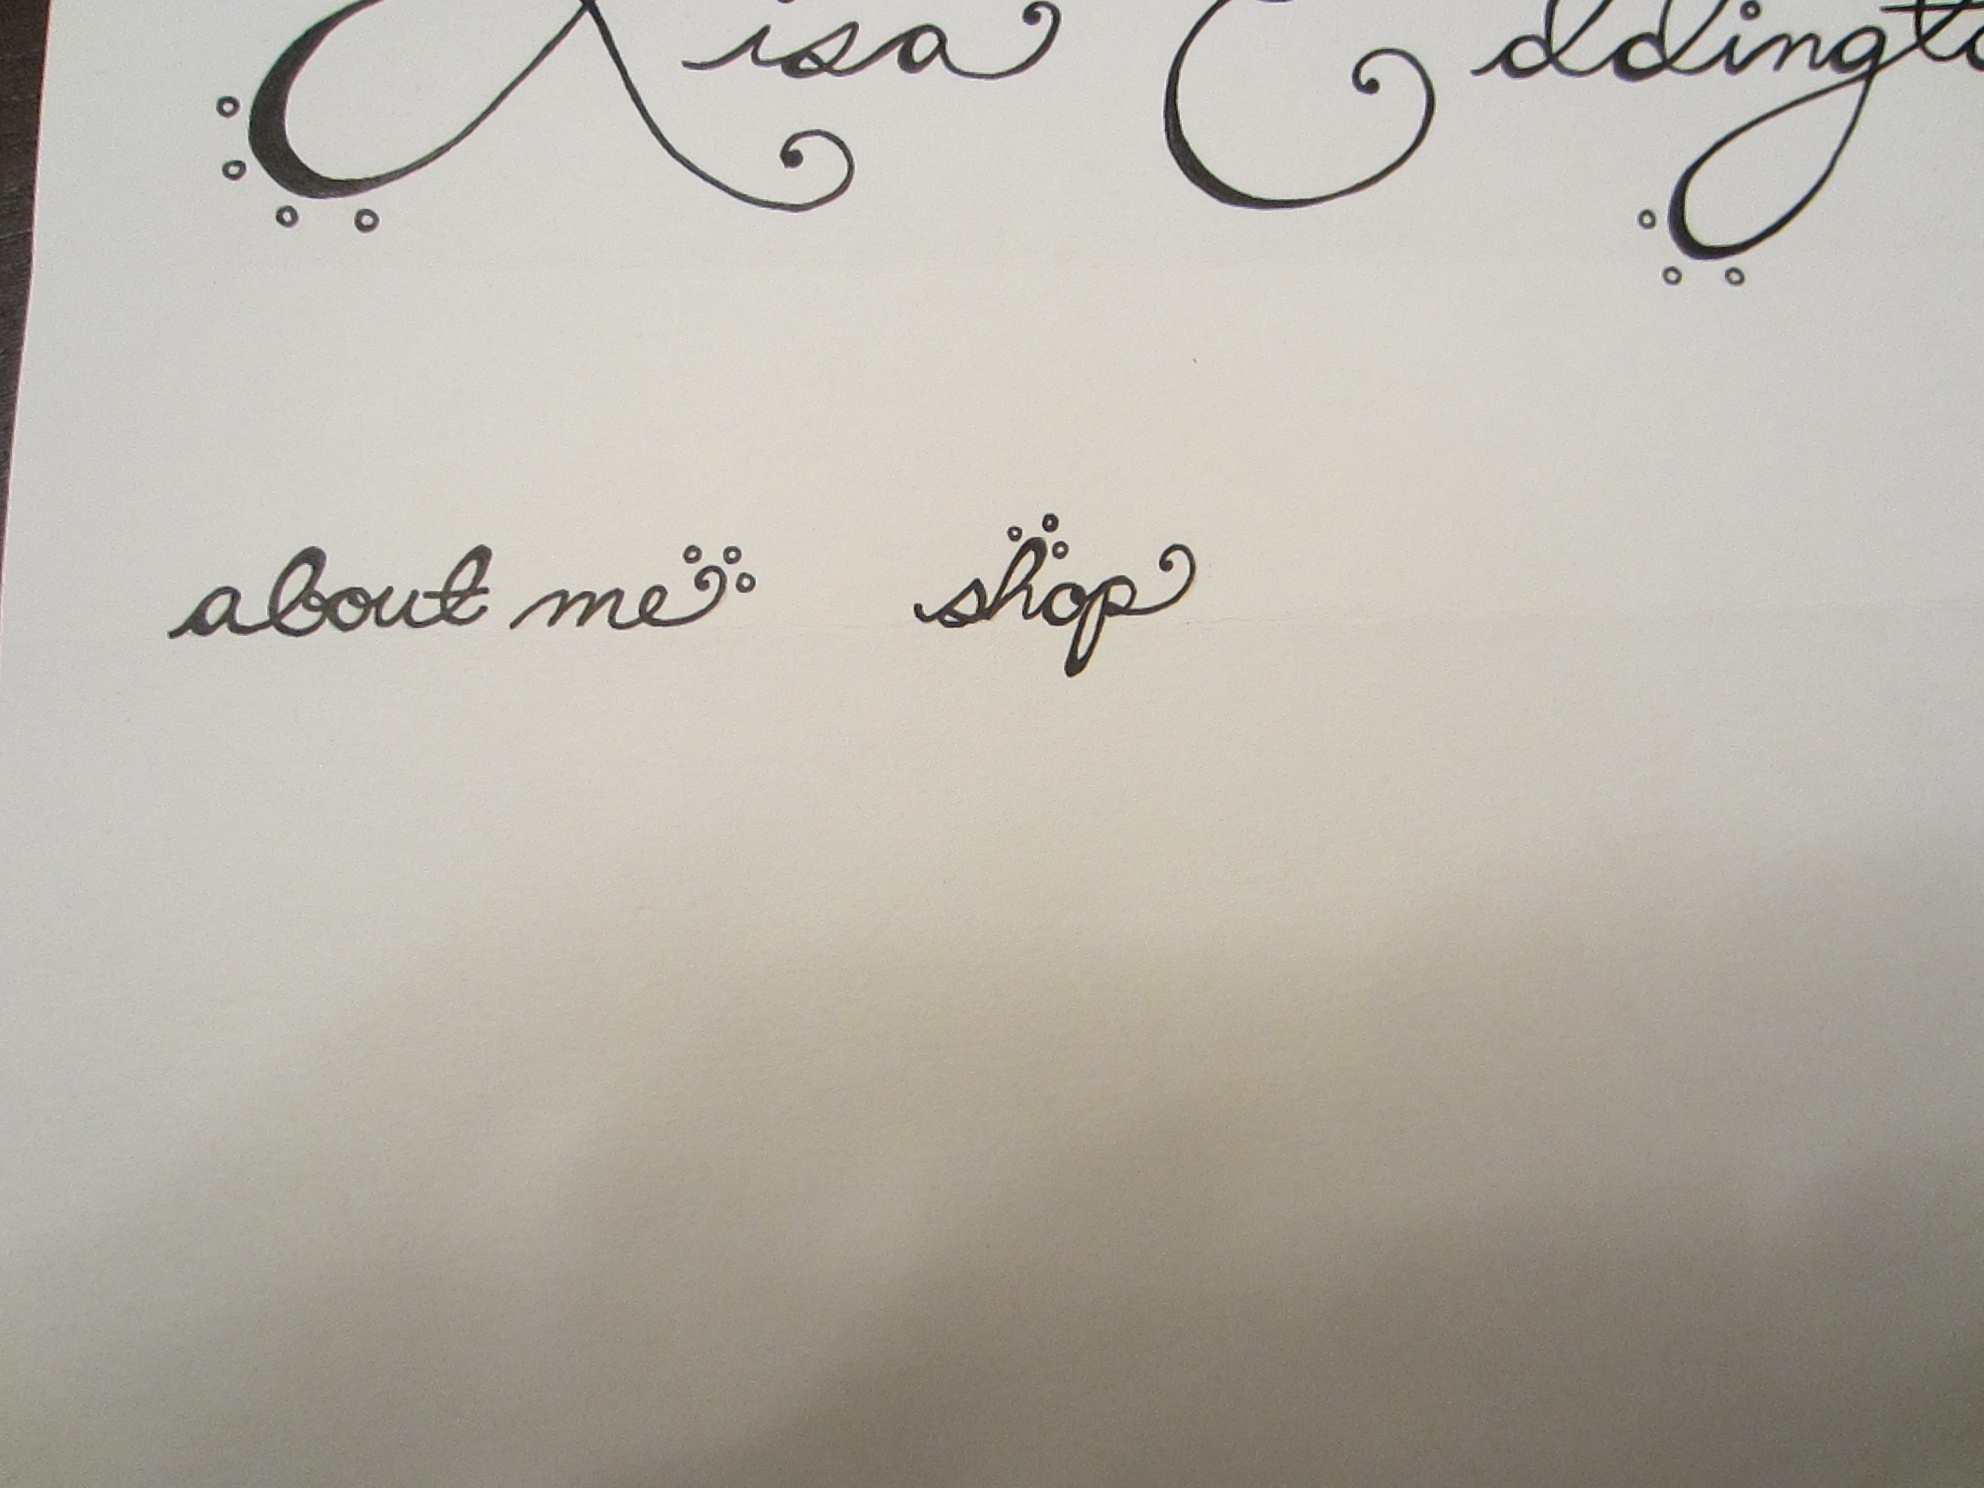 Lisa Eddingto
about me shop